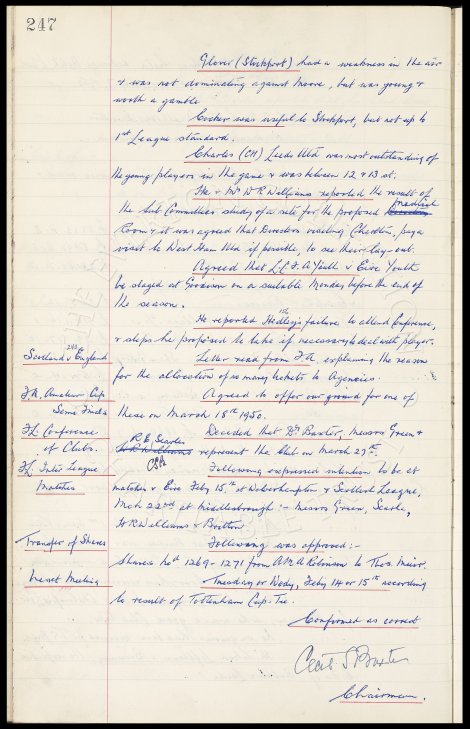 247
Glover (Stockport) had a weakness in the air
& was not dominating against Moore, but was young &
worth a gamble
Cocker was useful to Stockport, but not up to
1st League standard.
Charles (CH) Leeds Utd was most outstanding of
the young players in the game & was between 12 & 13 st.
He & Mr W R Williams reported the result of
the Sub Committees study of a site for the proposed Medical
Room & it was agreed that Directors visiting Charlton, pay a
visit to West Ham Utd if possible, to see their lay-out.
Agreed that L.C.F.A Youth v Eire Youth
be staged at Goodison on a suitable Monday before the end of
the season.
He reported Hedley's failure to attend Conference,
& steps he proposed to take if necessary to deal with player.
Scotland v England
Letter read from F.A. explaining the reason
for the allocation of so many tickets to Agencies.
F.A. Amateur Cup
Semi Finals
Agreed to offer our ground for one of
these on March 18th 1950.
F.L. Conference
of Clubs.
Decided that Dr Baxter, Messrs Green &
R E Searle
W.R. Williams represent the Club on March 27th.
CSB
F.L. Inter League
Matches
Following expressed intention to be at
matches v Eire Feby 15th at Wolverhampton, & Scottish League,
Mch 22nd at Middlesbrough :- Messrs Green, Searle,
W R Williams & Britton.
Transfer of Shares
Following was approved :-
Shares Nos 1269-1271 from A M A Robinson to Thos. Muir.
Next Meeting
Tuesday or Wedy, Feby 14 or 15th according
to result of Tottenham Cup-Tie.
Confirmed as correct
Cecil S Baxter
Chairman.